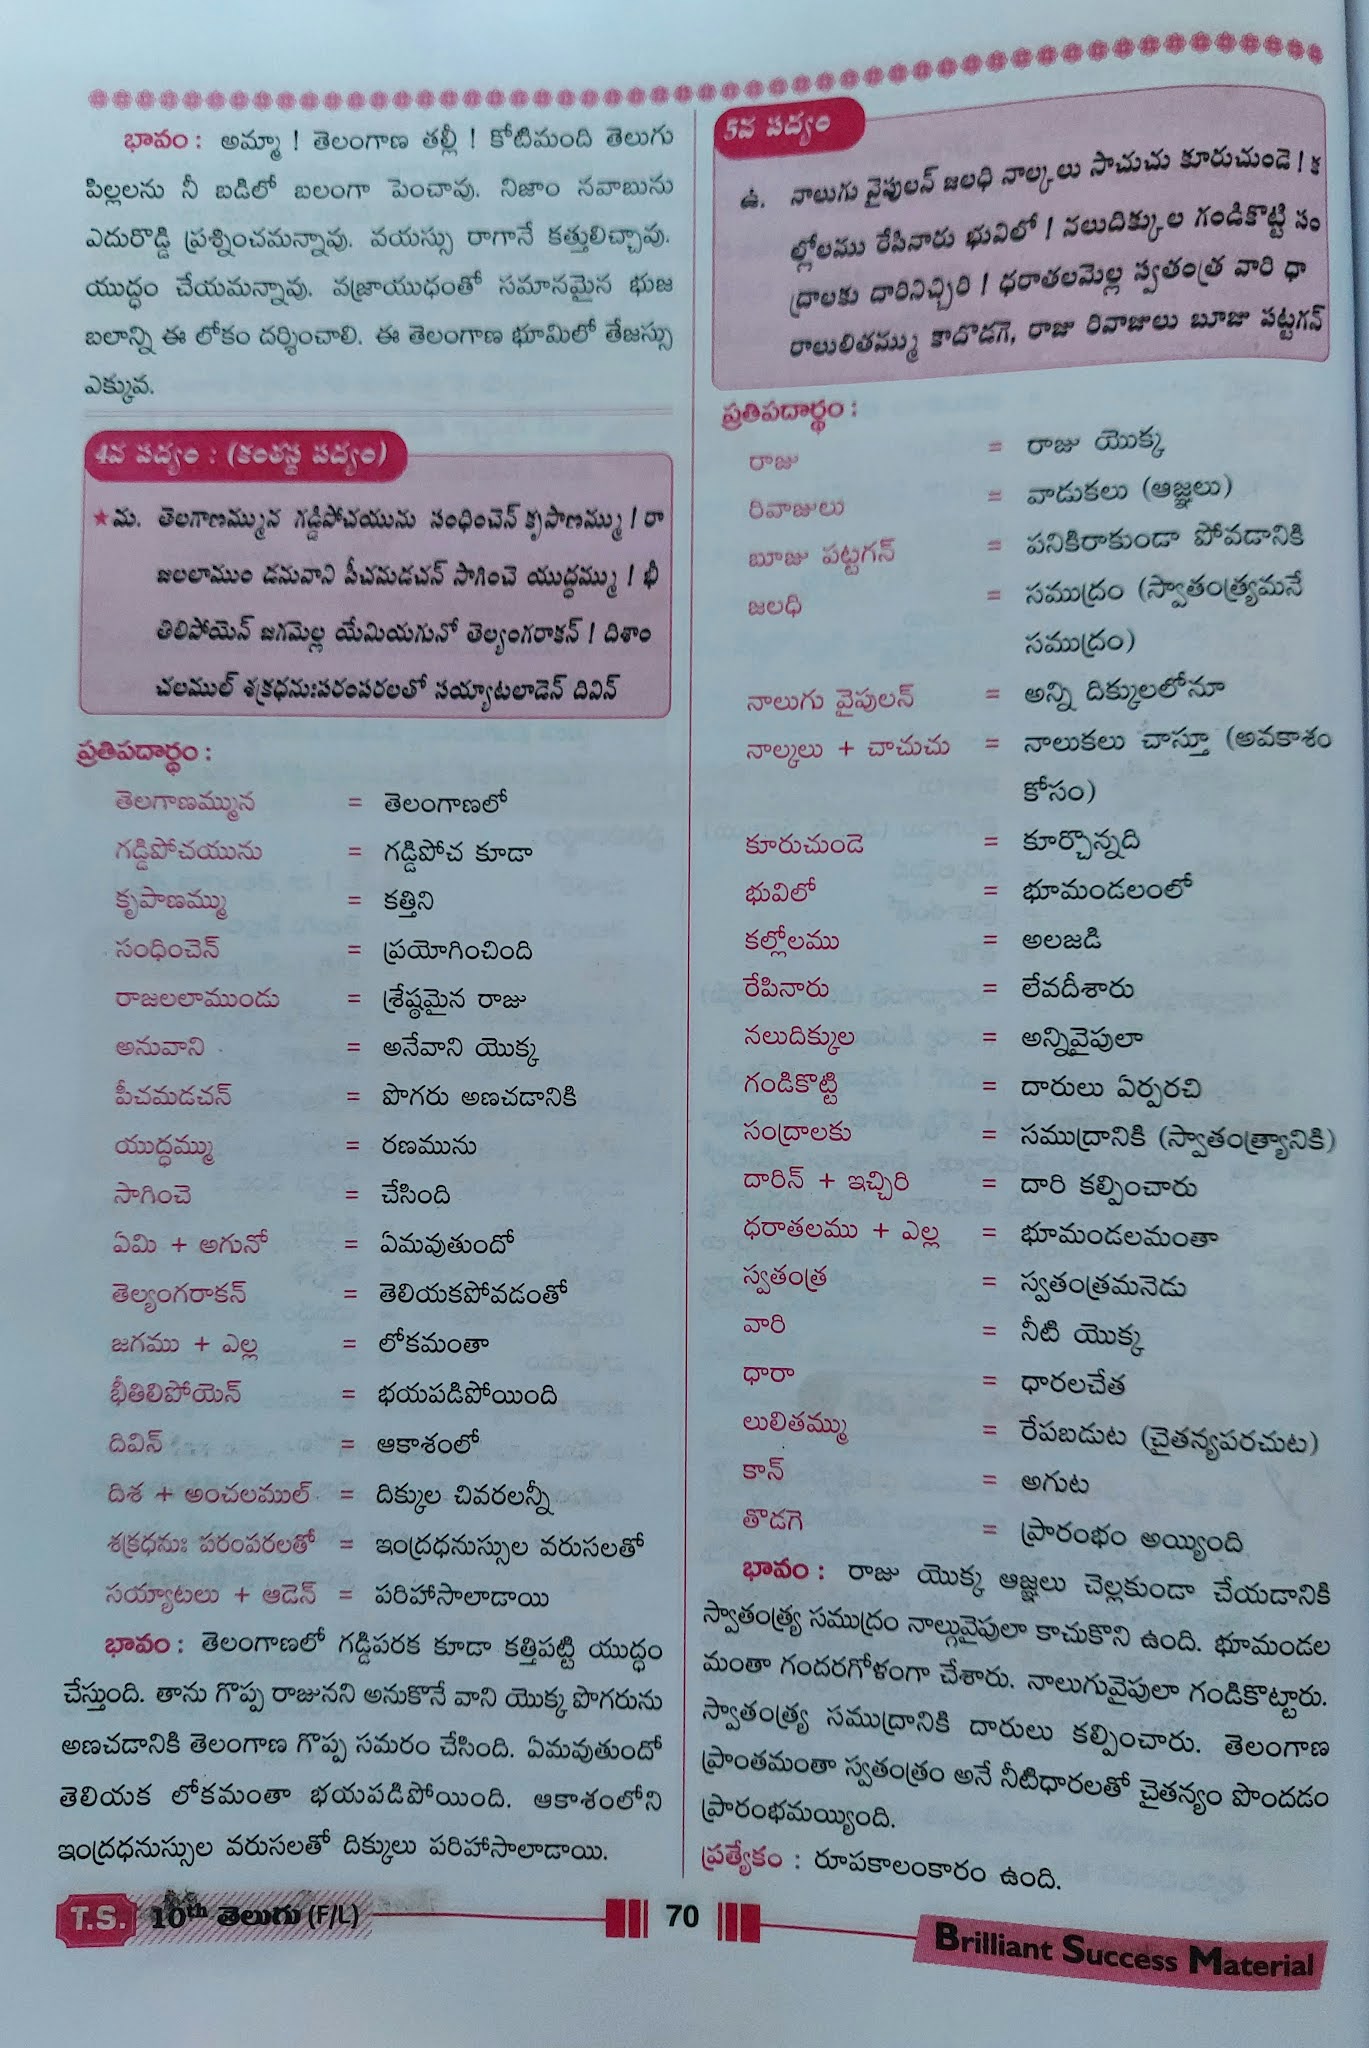 భావం : అమ్మా ! తెలంగాణ తల్లీ ! కోటిమంది తెలుగు
పిల్లలను నీ బడిలో బలంగా పెంచావు. నిజాం నవాబును
ఎదురొడ్డి ప్రశ్నించమన్నావు. వయస్సు రాగానే కత్తులిచ్చావు.
యుద్ధం చేయమన్నావు. వజ్రాయుధంతో సమానమైన భుజ
బలాన్ని ఈ లోకం దర్శించాలి. ఈ తెలంగాణ భూమిలో తేజస్సు
ఎక్కువ.
4వ పద్యం : (కంఠస్థ పద్యం)
★ మ. తెలగాణమ్మున గడ్డిపోచయును సంధించెన్ కృపాణమ్ము ! రా
జలలాముం డనువాని పీచమడచన్ సాగించె యుద్ధమ్ము ! భీ
తిలిపోయెన్ జగమెల్ల యేమియగునో తెల్యంగరాకన్ ! దిశాం
చలముల్ శక్రధనుఃపరంపరలతో సయ్యాటలాడెన్ దివిన్
ప్రతిపదార్థం :
తెలగాణమ్మున = తెలంగాణలో
గడ్డిపోచయును = గడ్డిపోచ కూడా
కృపాణమ్ము = కత్తిని
సంధించెన్ = ప్రయోగించింది
రాజలలాముండు = శ్రేష్ఠమైన రాజు
అనువాని = అనేవాని యొక్క
పీచమడచన్ = పొగరు అణచడానికి
యుద్ధమ్ము = రణమును
సాగించె = చేసింది
ఏమి + అగునో = ఏమవుతుందో
తెల్యంగరాకన్ = తెలియకపోవడంతో
జగము + ఎల్ల = లోకమంతా
భీతిలిపోయెన్ = భయపడిపోయింది
దివిన్ = ఆకాశంలో
దిశ + అంచలముల్ = దిక్కుల చివరలన్నీ
శక్రధనుః పరంపరలతో = ఇంద్రధనుస్సుల వరుసలతో
సయ్యాటలు + ఆడెన్ = పరిహాసాలాడాయి
భావం : తెలంగాణలో గడ్డిపరక కూడా కత్తిపట్టి యుద్ధం
చేస్తుంది. తాను గొప్ప రాజునని అనుకొనే వాని యొక్క పొగరును
అణచడానికి తెలంగాణ గొప్ప సమరం చేసింది. ఏమవుతుందో
తెలియక లోకమంతా భయపడిపోయింది. ఆకాశంలోని
ఇంద్రధనుస్సుల వరుసలతో దిక్కులు పరిహాసాలాడాయి.
5వ పద్యం
ఉ. నాలుగు వైపులన్ జలధి నాల్కలు సాచుచు కూరుచుండె ! క
ల్లోలము రేపినారు భువిలో ! నలుదిక్కుల గండికొట్టి సం
ద్రాలకు దారినిచ్చిరి ! ధరాతలమెల్ల స్వతంత్ర వారి ధా
రాలులితమ్ము కాదొడగె, రాజు రివాజులు బూజు పట్టగన్
ప్రతిపదార్థం :
రాజు = రాజు యొక్క
రివాజులు = వాడుకలు (ఆజ్ఞలు)
బూజు పట్టగన్ = పనికిరాకుండా పోవడానికి
జలధి = సముద్రం (స్వాతంత్ర్యమనే
సముద్రం)
నాలుగు వైపులన్ = అన్ని దిక్కులలోనూ
నాల్కలు + చాచుచు = నాలుకలు చాస్తూ (అవకాశం
కోసం)
కూరుచుండె = కూర్చొన్నది
భువిలో = భూమండలంలో
కల్లోలము = అలజడి
రేపినారు = లేవదీశారు
నలుదిక్కుల = అన్నివైపులా
గండికొట్టి = దారులు ఏర్పరచి
సంద్రాలకు = సముద్రానికి (స్వాతంత్ర్యానికి)
దారిన్ + ఇచ్చిరి = దారి కల్పించారు
ధరాతలము + ఎల్ల = భూమండలమంతా
స్వతంత్ర = స్వతంత్రమనెడు
వారి = నీటి యొక్క
ధారా = ధారలచేత
లులితమ్ము = రేపబడుట (చైతన్యపరచుట)
కాన్ = అగుట
తొడగె = ప్రారంభం అయ్యింది
భావం : రాజు యొక్క ఆజ్ఞలు చెల్లకుండా చేయడానికి
స్వాతంత్ర్య సముద్రం నాల్గువైపులా కాచుకొని ఉంది. భూమండల
మంతా గందరగోళంగా చేశారు. నాలుగువైపులా గండికొట్టారు.
స్వాతంత్ర్య సముద్రానికి దారులు కల్పించారు. తెలంగాణ
ప్రాంతమంతా స్వతంత్రం అనే నీటిధారలతో చైతన్యం పొందడం
ప్రారంభమయ్యింది.
ప్రత్యేకం : రూపకాలంకారం ఉంది.
T.S. 10th తెలుగు (F/L)
70
Brilliant Success Material